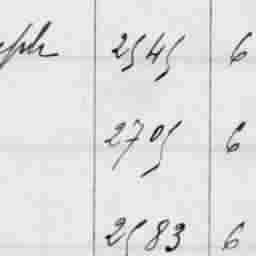 2545 6
2705 6
2583 6